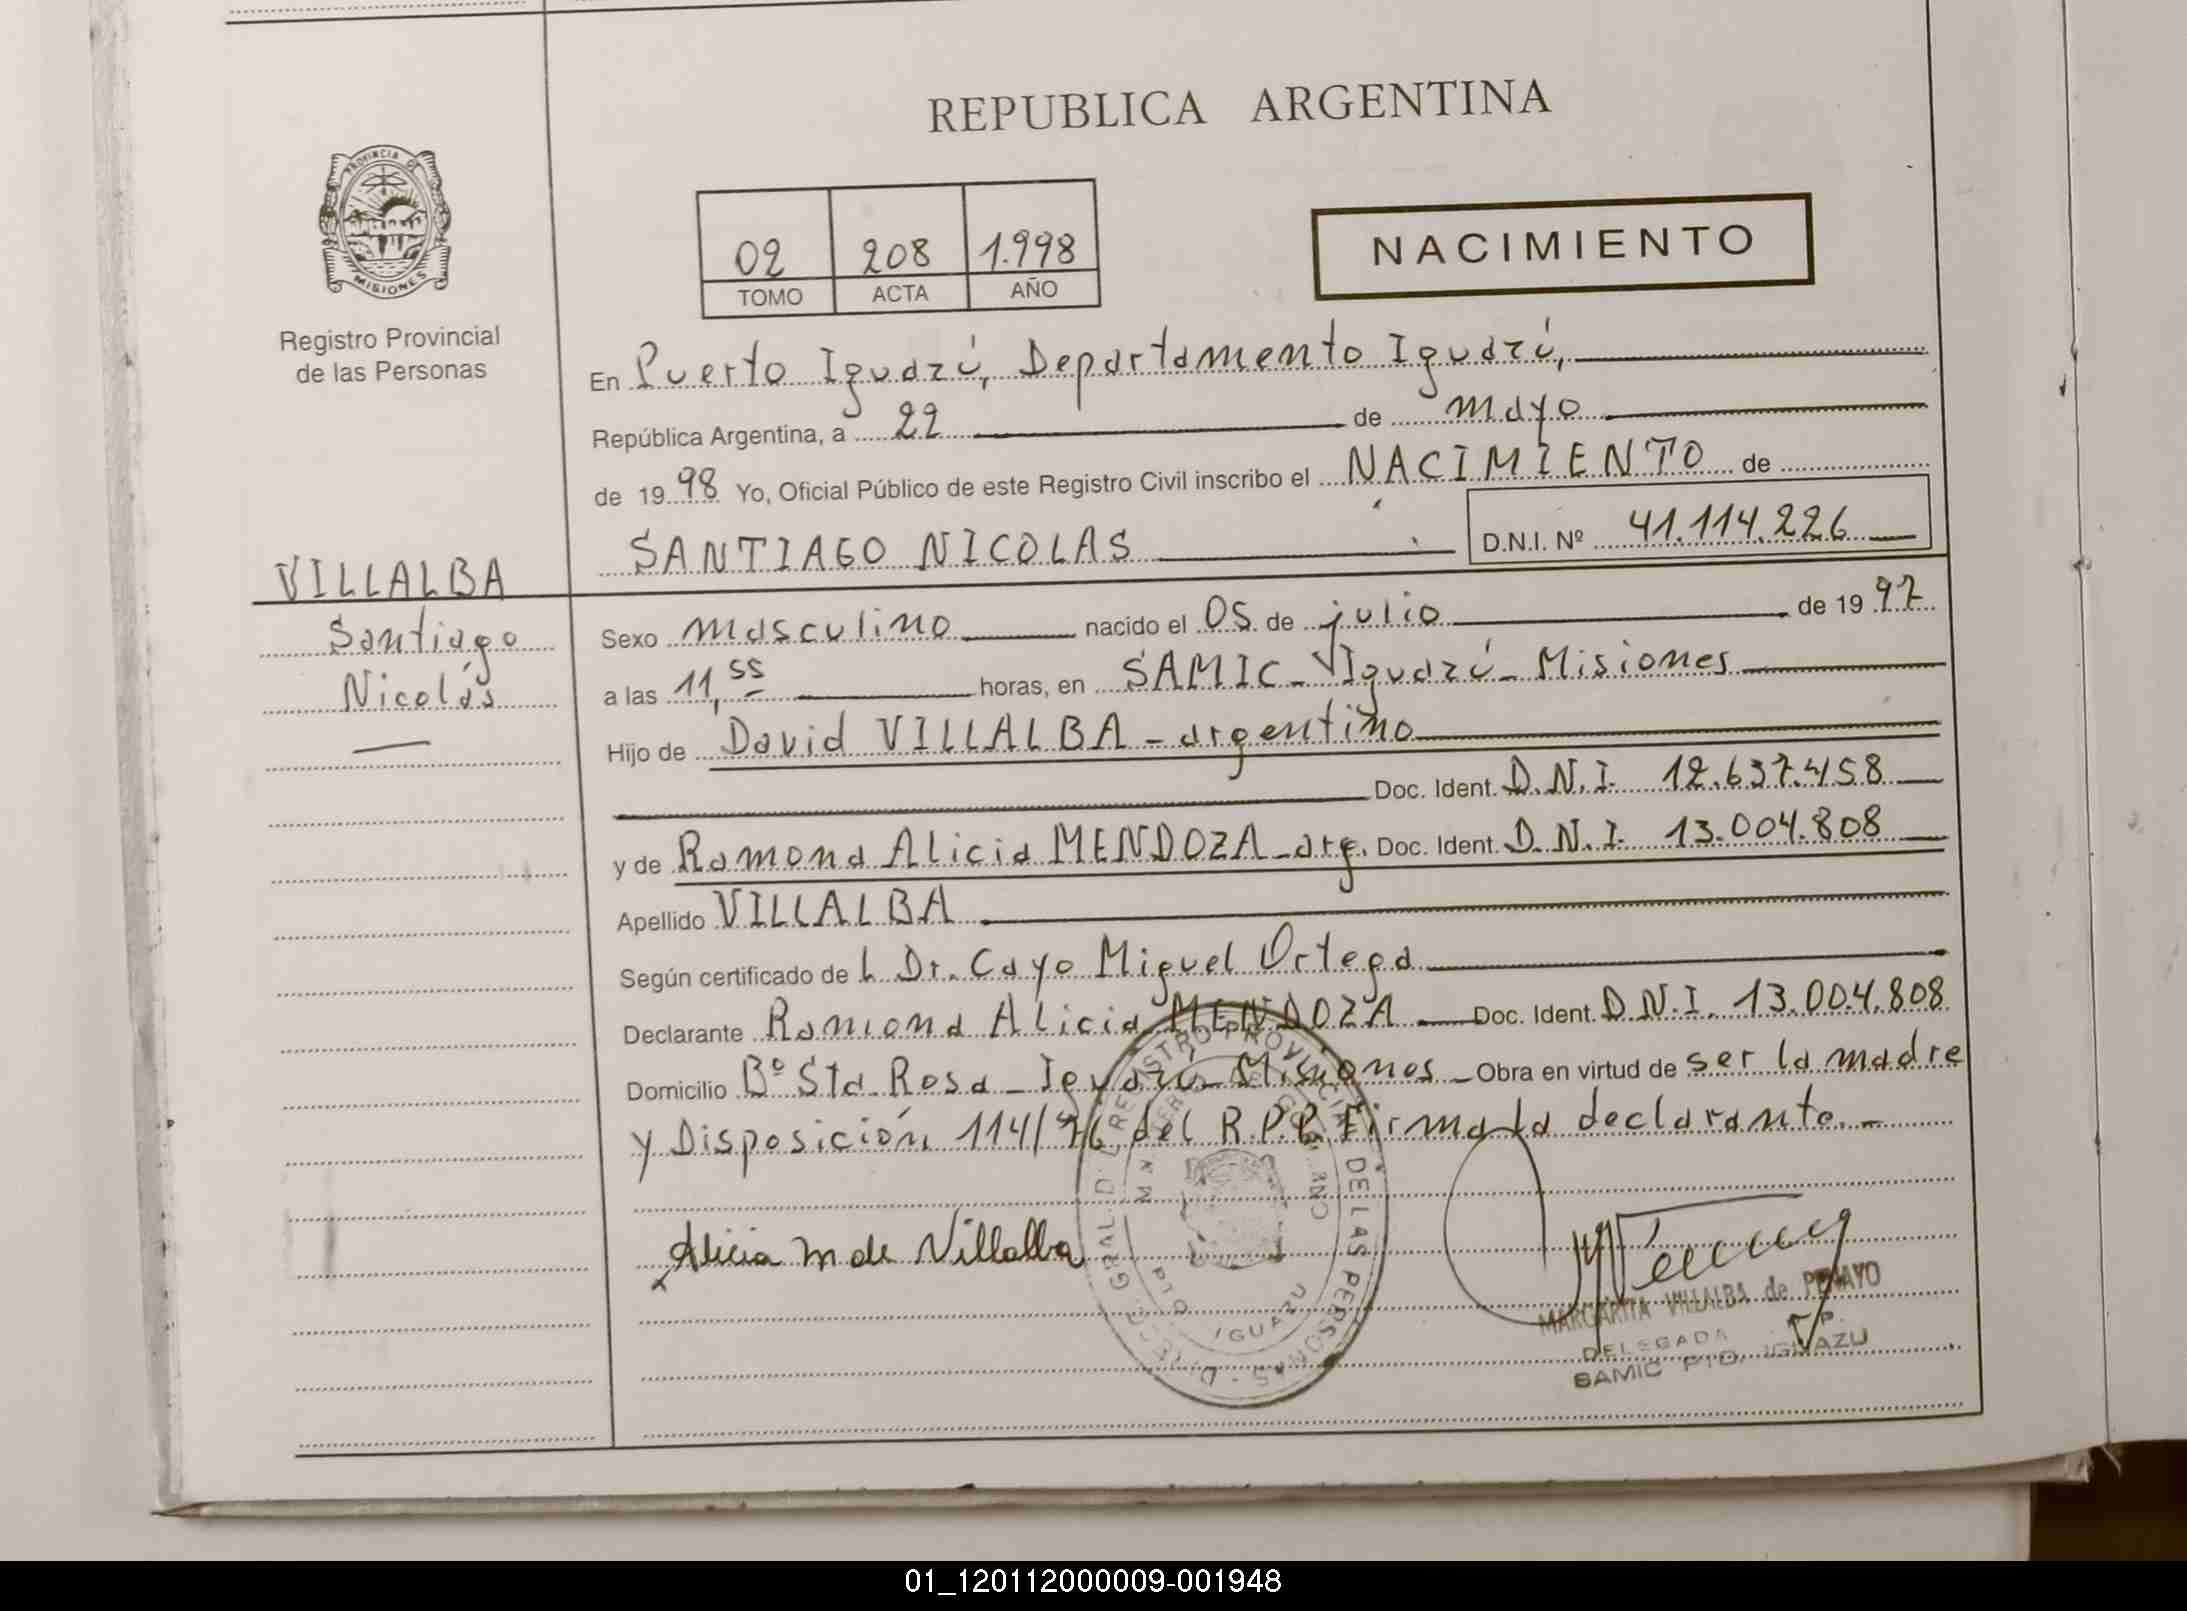 REPUBLICA ARGENTINA
PROVINCIA DE
MISIONES
Registro Provincial
de las Personas
02 208 1.998
TOMO ACTA AÑO
NACIMIENTO
En Puerto Iguazú, Departamento Iguazú,
República Argentina, a 22 de mayo
de 19 98 Yo, Oficial Público de este Registro Civil inscribo el NACIMIENTO de
SANTIAGO NICOLAS D.N.I. Nº 41.114.226
VILLALBA
Santiago
Nicolás
Sexo masculino nacido el 05 de julio de 19 97
a las 11,55 horas, en SAMIC - Iguazú - Misiones
Hijo de David VILLALBA - argentino
Doc. Ident. D.N.I. 12.637.458
y de Ramona Alicia MENDOZA - arg. Doc. Ident. D.N.I. 13.004.808
Apellido VILLALBA
Según certificado de l Dr. Cayo Miguel Ortega
Declarante Ramona Alicia MENDOZA Doc. Ident. D.N.I. 13.004.808
Domicilio Bº Sta. Rosa - Iguazú - Misiones - Obra en virtud de ser la madre
y Disposición 114/96 del R.P.P. Firma la declarante. -
Alicia M de Villalba
REGISTRO PROVINCIAL DE LAS PERSONAS
IGUAZU
MARGARITA VILLALBA de
DELEGADA
SAMIC PTO. IGUAZU
01_120112000009-001948